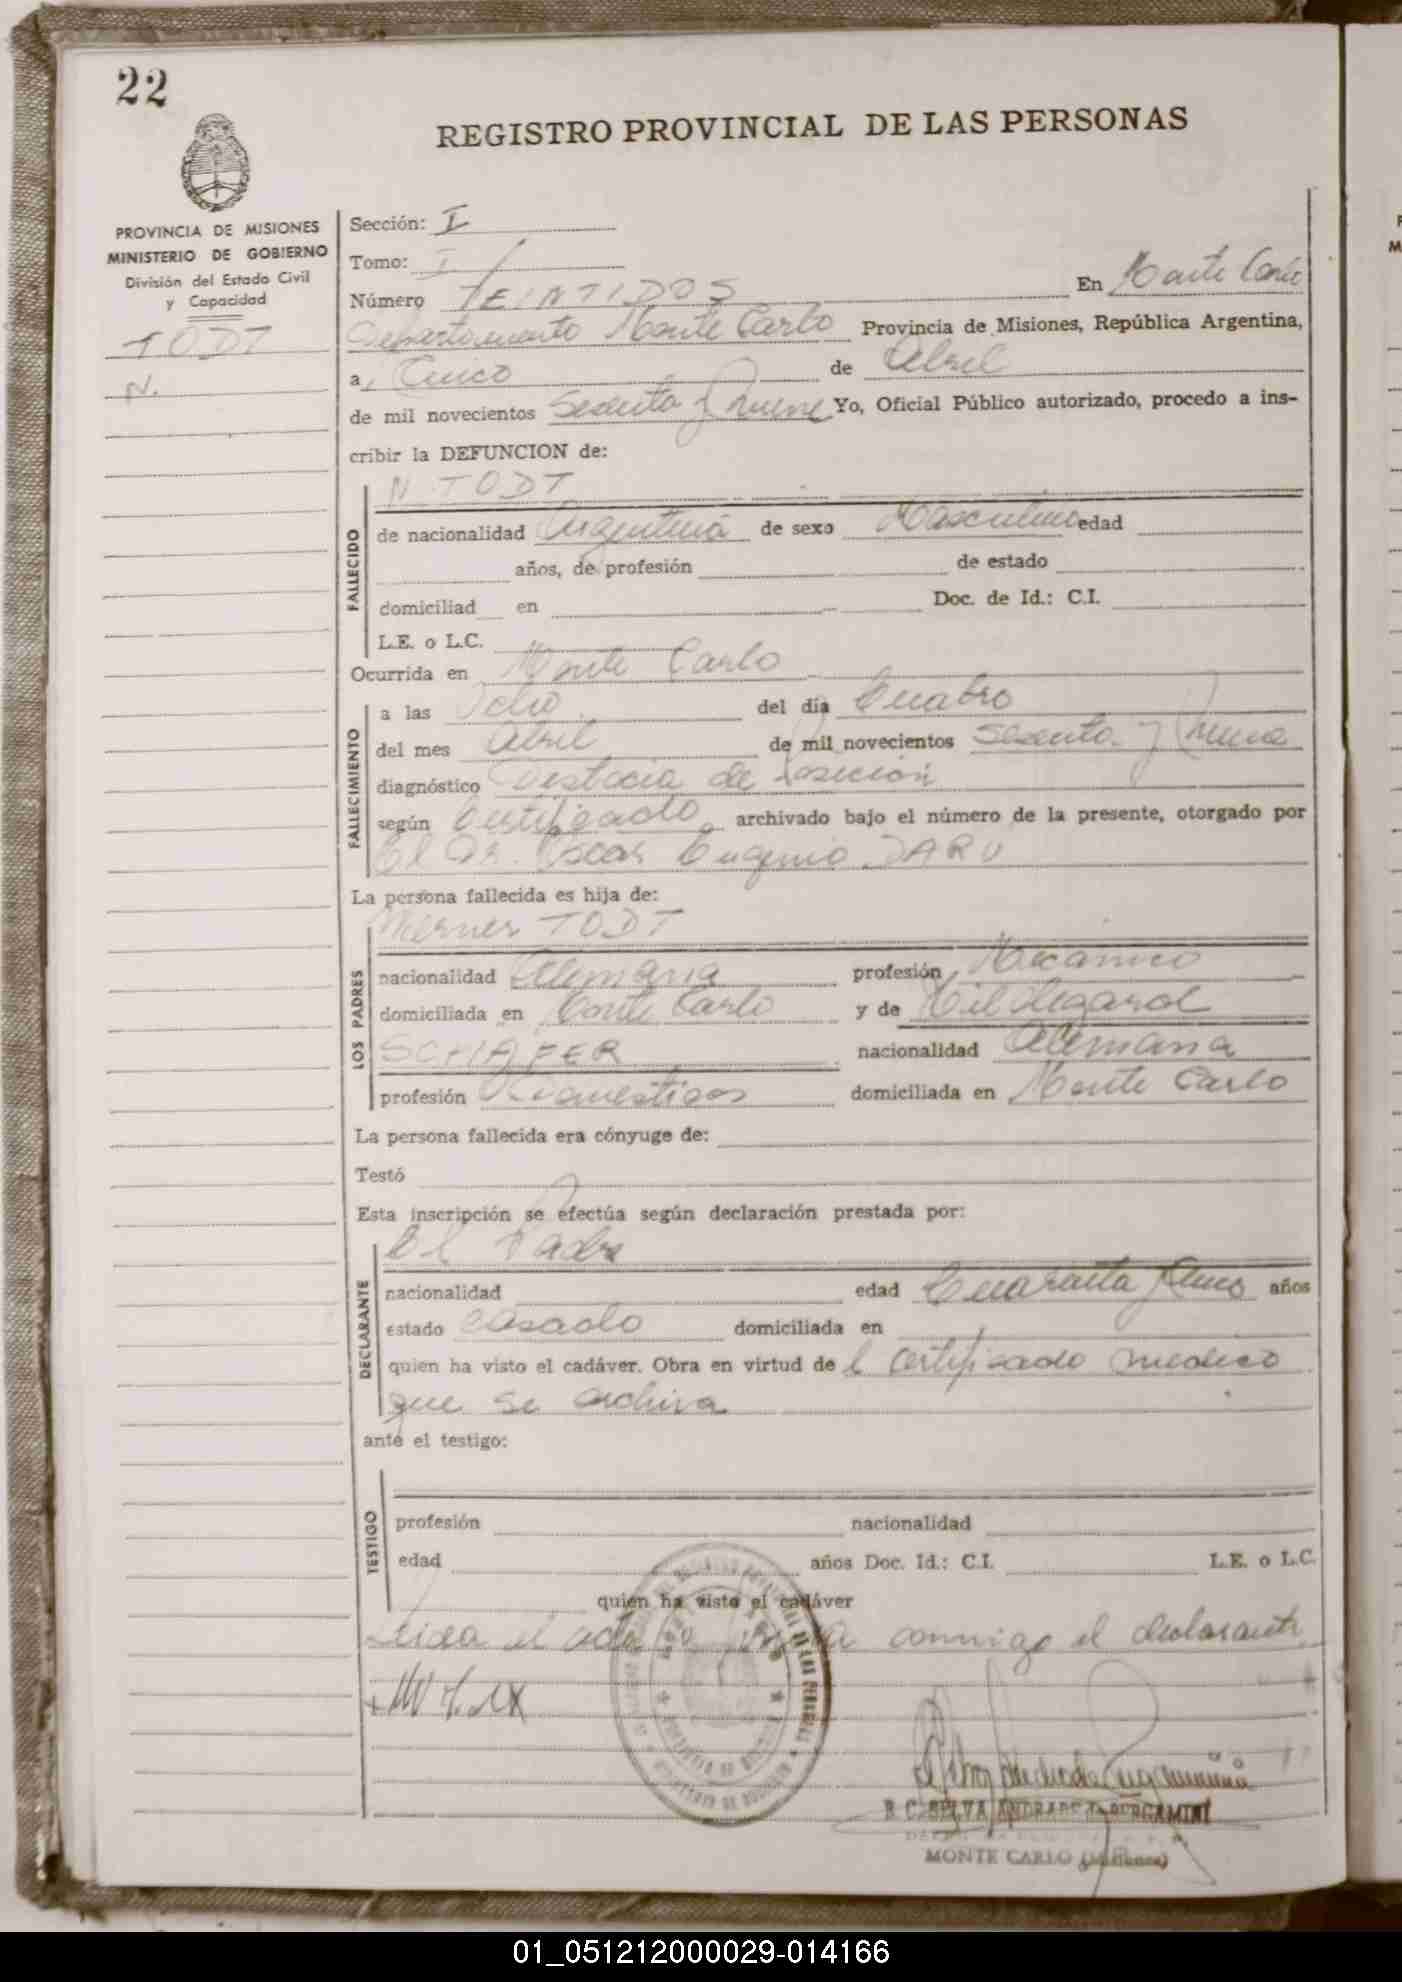 22
REGISTRO PROVINCIAL DE LAS PERSONAS
PROVINCIA DE MISIONES
MINISTERIO DE GOBIERNO
División del Estado Civil
y Capacidad
TODT
N.
Sección: I
Tomo: I
Número VEINTIDOS En Monte Carlo
Departamento Monte Carlo Provincia de Misiones, República Argentina,
a, Cinco de Abril
de mil novecientos Sesenta y Nueve Yo, Oficial Público autorizado, procedo a ins-
cribir la DEFUNCION de:
N. TODT
FALLECIDO
de nacionalidad Argentina de sexo Masculino edad
años, de profesión de estado
domiciliad en Doc. de Id.: C.I.
L.E. o L.C.
Ocurrida en Monte Carlo
FALLECIMIENTO
a las Ocho del día Cuatro
del mes Abril de mil novecientos Sesenta y Nueve
diagnóstico Distocia de Posición
según Certificado archivado bajo el número de la presente, otorgado por
El Dr. Oscar Eugenio DARU
La persona fallecida es hija de:
Werner TODT
LOS PADRES
nacionalidad Alemana profesión Mecánico
domiciliada en Monte Carlo y de Hildegard
SCHAFER nacionalidad Alemana
profesión Q. Domésticos domiciliada en Monte Carlo
La persona fallecida era cónyuge de:
Testó
Esta inscripción se efectúa según declaración prestada por:
El Padre
DECLARANTE
nacionalidad edad Cuarenta y Cinco años
estado Casado domiciliada en
quien ha visto el cadáver. Obra en virtud de l certificado medico
que se archiva
ante el testigo:
TESTIGO
profesión nacionalidad
edad años Doc. Id.: C.I. L.E. o L.C.
quien ha visto el cadáver
Leida el acta la firma conmigo el declarante
B. C. SELVA ANDRADE de BERGAMINI
MONTE CARLO (Misiones)
01_051212000029-014166